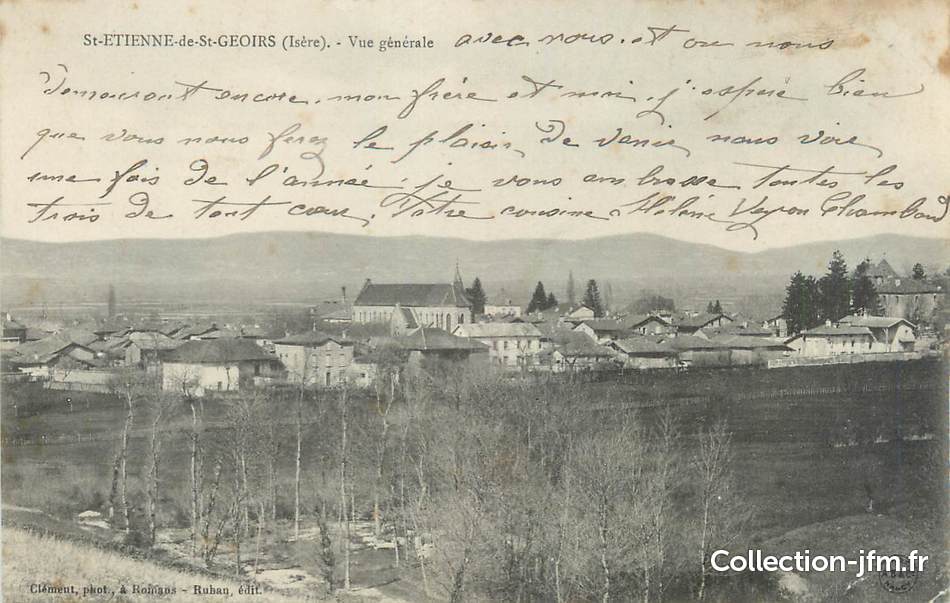 St-ETIENNE-de-St-GEOIRS (Isère). - Vue générale avec nous. et ou nous
Demouront encore, mon frère et moi, j'espère bien
que vous nous ferez le plaisir, De venir nous voir
une fois de l'année. je vous embrasse toutes les
trois De tout cœur, Votre cousine Hélène Veyron Chambaud
Clément, phot., à Romans - Ruban, édit.
Collection-jfm.fr